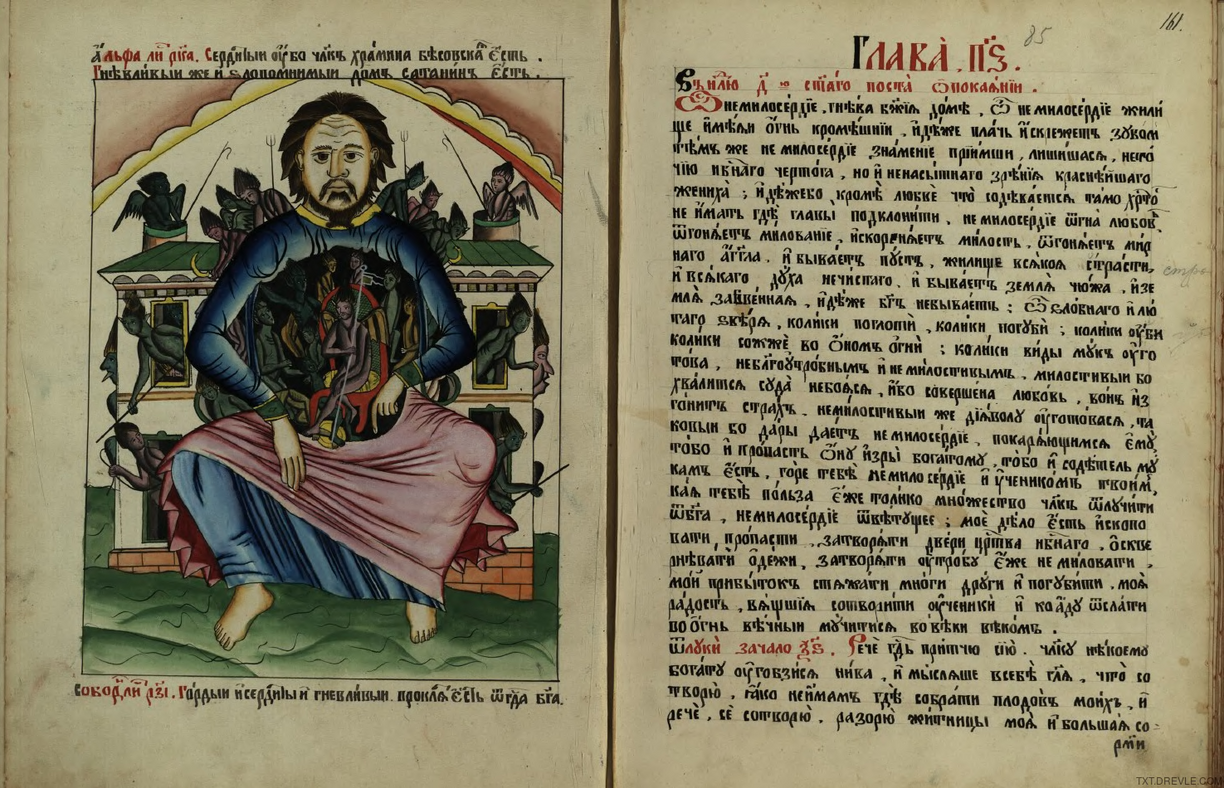 а҆льфа ли р҃ка. Серди́тыи ᲂу҆́бо чл҃къ хра́мина бѣсовскаѧ є҆́сть.
Гнѣвли́выи же и ѕлопомнимыи до́мъ сатанинъ є҆́сть.
Собо́р ли . Го́рдыи и҆ се́рдитыи и҆ гневли́выи. прокля є҆́сть ѿ гда бг҃а.
161.
85
Глава̀ . п҃ѕ.
В не́лю д҃ ю ст҃а́го поста̀ ѡ҆ покая́нїи .
Ѡ҆ немилосе́рдїе , гнѣ́ва бж҃їѧ до́мъ , ѡ҆ немилосе́рдїе жили́
ще и҆мѣ́ѧи ѻ҆́гнь кромѣ́шнїи , и҆дѣ́же пла́чь и҆ скре́жетъ зубом
тѣ́мъ же не милосе́рдїе зна́менїе прїи́мши , лиши́шасѧ , него́
чїю нбⷭ҇наго черто́га , но и҆ ненасы́тнаго зрѣ́нїѧ красне́йшаго
жениха̀ ; и҆дѣ́жебо кромѣ̀ любвѐ что̀ содѣ́ваетсѧ та́мо хрⷭ҇то́
не и҆́мать гдѣ̀ главы̀ подклони́ти , не милосе́рдїе ѿгна̀ любо́в
ѿгоня́етъ ми́лованїе , и҆скореня́етъ ми́лость , ѿгоня́етъ мир
наго а҆́гг҃ла , и҆ быва́етъ пу́стъ , жили́ще всѧ́коѧ стра́сти ,
и҆ всѧ́каго дꙋ́ха нечи́стаго . и҆ быва́етъ землѧ̀ чюжа̀ , и҆ зе
млѧ̀ забве́ннаѧ , и҆дѣ́же бг҃ъ небыва́етъ ; ѡ҆ ѕло́бнаго и҆ лю́
таго ѕвѣ́рѧ , коли́ки поглотѝ , коли́ки погꙋбѝ ; коли́ки ᲂу҆би
коли́ки сожжѐ во ѻ҆́номъ ѻ҆гнѝ ; коли́ки ви́ды мꙋ́къ ᲂу҆го
то́ва , небл҃гоꙋтро́бнымъ и҆ не ми́лостивымъ . ми́лостивыи бо
хва́литсѧ сꙋда̀ небоя́сѧ , и҆́бо соверше́на любо́вь , во́нъ и҆з
гони́тъ стра́хъ . неми́лостивыи же дїѧ́волꙋ ᲂу҆гото́васѧ , та
ковы́и бо да́ры дае́тъ немилосе́рдїе , покарѧ́ющимсѧ є҆мꙋ̀ ,
то́бо и҆ про́пасть ѻ҆́нꙋ и҆зры̀ бога́томꙋ , то́бо и҆ содѣ́тель мꙋ́
камъ є҆́сть , го́ре тебѣ̀ немилосе́рдїе и҆ ᲂу҆ченико́мъ твои́м ,
ка́ѧ тебѣ̀ по́льза є҆́же толи́ко мно́жество чл҃къ ѿлꙋчи́ти
ѿ бг҃а , немилосе́рдїе ѿвѣ́тꙋщее ; моѐ дѣ́ло є҆́сть и҆скопо
вати , про́пасти , затворя́ти две́ри црⷭ҇тва нбⷭ҇наго , ѻ҆скве
рнѣва́ти ѻ҆де́жи , затворя́ти ᲂу҆тро́бꙋ є҆́же не ми́ловати ,
мо́и прибы́токъ стѧжа́ти мно́ги дрꙋ́ги и҆ погꙋби́ти . моя
ра́дость , вѧ́щшїѧ сотвори́ти ᲂу҆ченикѝ и҆ ко а҆́дꙋ ѿсла́ти
во ѻ҆́гнь вѣ́чныи мꙋ́читисѧ во вѣ́ки вѣ́комъ .
Ѿ лꙋкѝ зача́ло ѯ҃ѕ . Речѐ гдⷭ҇ь при́тчю сїю̀ . чл҃кꙋ нѣ́коемꙋ
бога́тꙋ ᲂу҆гобзи́сѧ ни́ва , и҆ мы́слѧше всебѣ̀ гл҃ѧ , что̀ со
творю̀ , ꙗ҆́ко неи́мамъ гдѣ̀ собра́ти плодо́въ мои́хъ , и҆
речѐ , сѐ сотворю̀ . разорю̀ жи́тницы моѧ̀ и҆ бо́льшаѧ со
TXT.DREVLE.COM